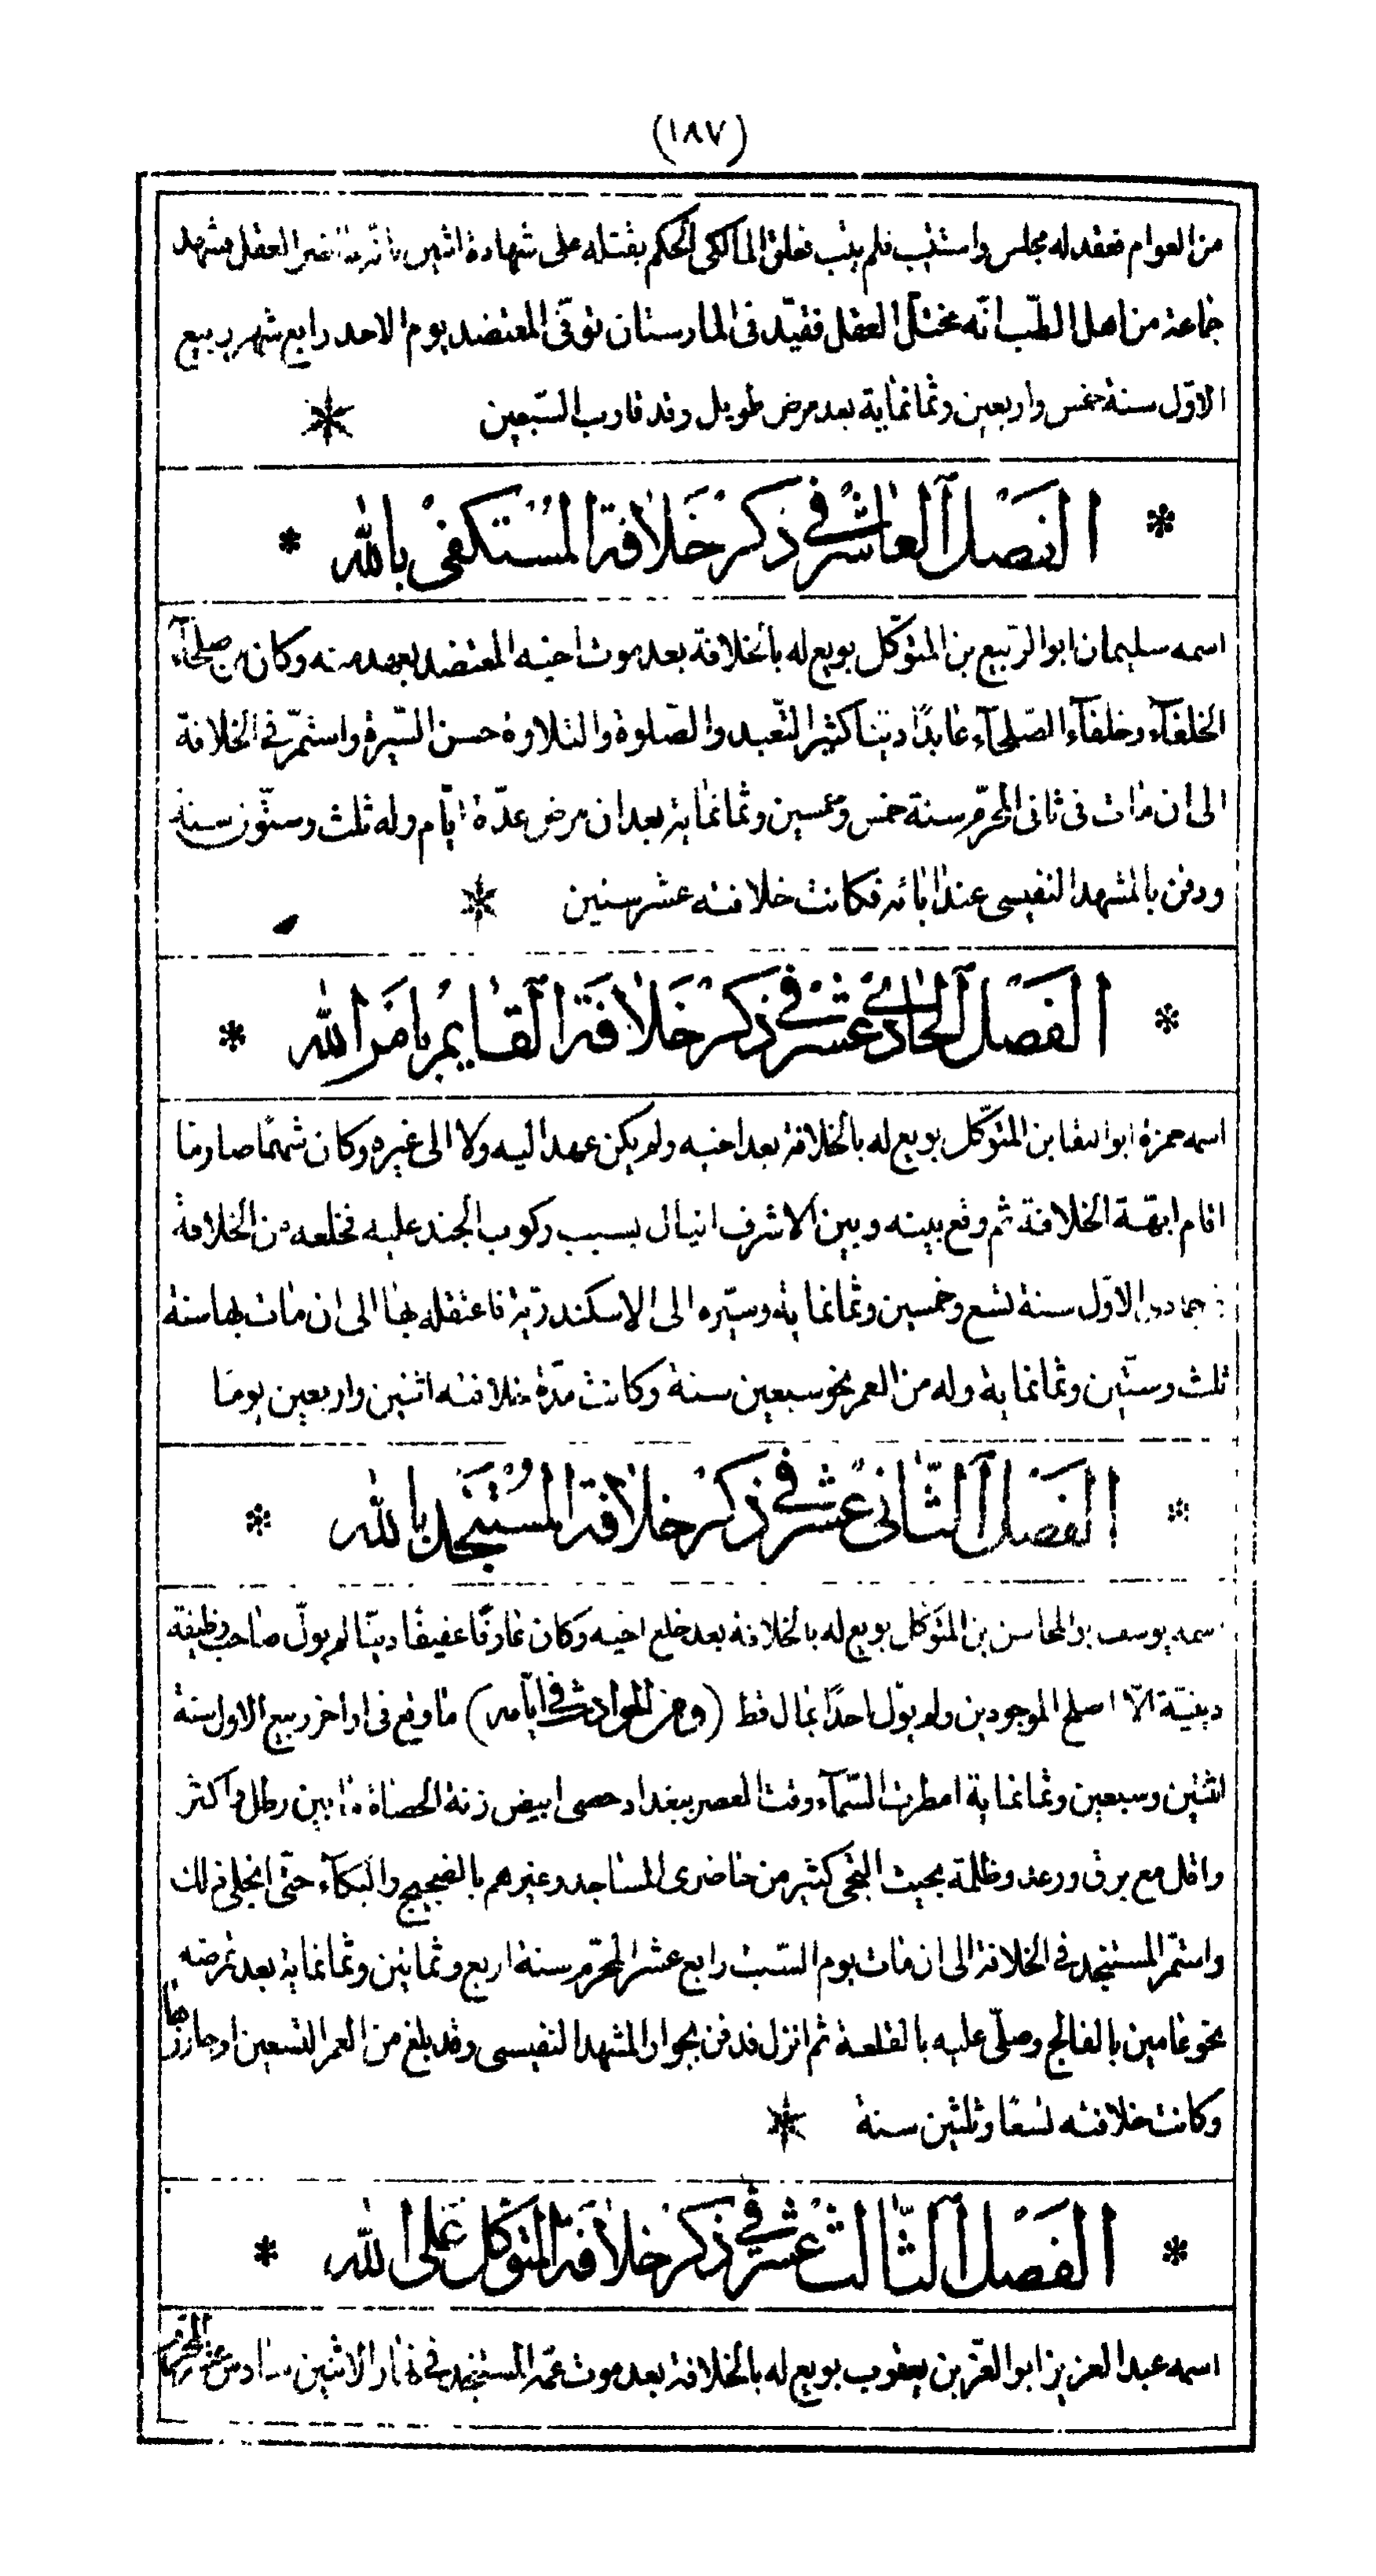 (١٨٧)
من العوام فعقد له مجلس واستتيب فلم يتب فعلق المالكى الحكم بقتله على شهادة اثنين بانه حاضر العقل فشهد
جماعة من اهل الطب انّه مختلّ العقل فقيّد فى المارستان توفّى المعتضد يوم الاحد رابع شهر ربيع
الاوّل سنة خمس واربعين وثمانماية بعد مرض طويل وقد قارب السّبعين
الفصل العاشر فى ذكر خلافة المستكفى بالله
اسمه سليمان ابو الربيع بن المتوكّل بويع له بالخلافة بعد موت اخيه المعتضد بعهد منه وكان من صلحآء
الخلفآء وخلفآء الصّلحآء عابدًا ديّنا كثير التّعبد والصّلوة والتلاوة حسن السّيرة واستمرّ فى الخلافة
الى ان مات فى ثانى المحرّم سنة خمس وخمسين وثمانماية بعد ان مرض عدّة ايّام وله ثلث وستّون سنة
ودفن بالمشهد النفيسى عند ابائه فكانت خلافته عشر سنين
الفصل الحادى عشر فى ذكر خلافة القايم بامر الله
اسمه حمزة ابو البقا بن المتوكّل بويع له بالخلافة بعد اخيه ولم يكن عهد اليه ولا الى غيره وكان شهمًا صارمًا
اقام ابهّة الخلافة ثم وقع بينه وبين الاشرف انيال بسبب ركوب الجند عليه فخلعه من الخلافة
فى جمادى الاوّل سنة تسع وخمسين وثمانماية وسيّره الى الاسكندريّة فاعتقله بها الى ان مات بها سنة
ثلث وستّين وثمانماية وله من العمر نحو سبعين سنة وكانت مدّة خلافته اثنين واربعين يومًا
الفصل الثّانى عشر فى ذكر خلافة المستنجد بالله
اسمه يوسف ابو المحاسن بن المتوكل بويع له بالخلافة بعد خلع اخيه وكان عارفًا عفيفًا ديّنا لم يولّ صاحب وظيفة
دينيّة الّا اصلح الموجودين ولم يولّ احدًا بمال قط (ومن الحوادث فى ايّامه) ما وقع فى اواخر ربيع الاول سنة
اثنتين وسبعين وثمانماية امطرت السّمآء وقت العصر ببغداد حصى ابيض زنة الحصاة ما بين رطل واكثر
واقل مع برق ورعد وظلمة بحيث التجى كثير من حاضرى المساجد وغيرهم بالضجيج والبكآء حتّى انجلى ذلك
واستمرّ المستنجد فى الخلافة الى ان مات يوم السّبت رابع عشر المحرّم سنة اربع وثمانين وثمانماية بعد تمرضه
نحو عامين بالفالج وصلّى عليه بالقلعة ثم انزل فدفن بجوار المشهد النفيسى وقد بلغ من العمر التسعين او جازها
وكانت خلافته تسعًا وثلثين سنة
الفصل الثّالث عشر فى ذكر خلافة المتوكل على الله
اسمه عبد العزيز ابو العزّ بن يعقوب بويع له بالخلافة بعد موت عمّه المستنجد فى نهار الاثنين سادس عشر المحرّم